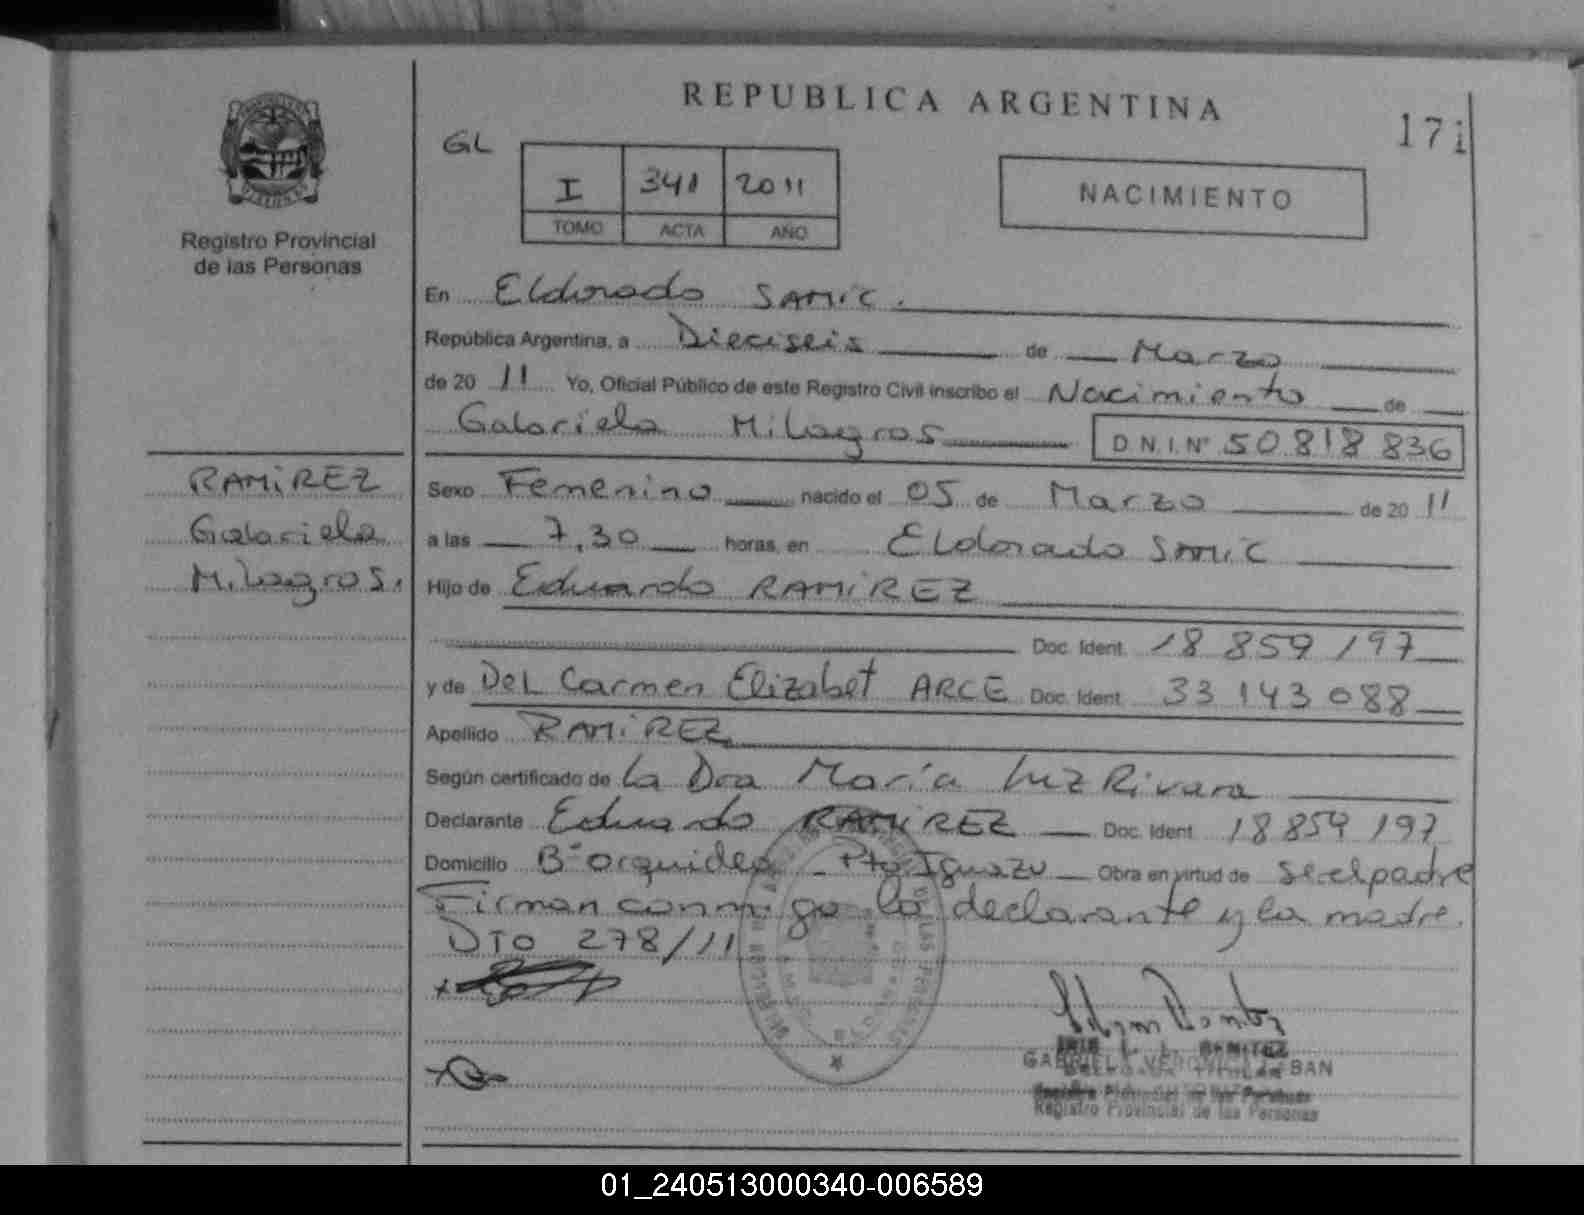 REPUBLICA ARGENTINA
171
GL
I 341 2011
TOMO ACTA AÑO
NACIMIENTO
Registro Provincial
de las Personas
En Eldorado SAMIC.
República Argentina, a Dieciseis de Marzo
de 20 11 Yo, Oficial Público de este Registro Civil inscribo el Nacimiento de
Gabriela Milagros D.N.I. Nº 50.818 836
RAMIREZ
Gabriela
Milagros.
Sexo Femenino nacido el 05 de Marzo de 20 11
a las 7,30 horas, en Eldorado SAMIC
Hijo de Eduardo RAMIREZ
Doc. Ident. 18 859 197
y de Del Carmen Elizabet ARCE Doc. Ident. 33 143 088
Apellido RAMIREZ
Según certificado de la Dra María Luz Rivara
Declarante Eduardo RAMIREZ Doc. Ident. 18 859 197
Domicilio Bº orquidea - Pto Iguazu Obra en virtud de ser el padre
Firman conmigo la declarante y la madre.
DTO 278/11
BENITEZ
Registro Provincial de las Personas
01_240513000340-006589